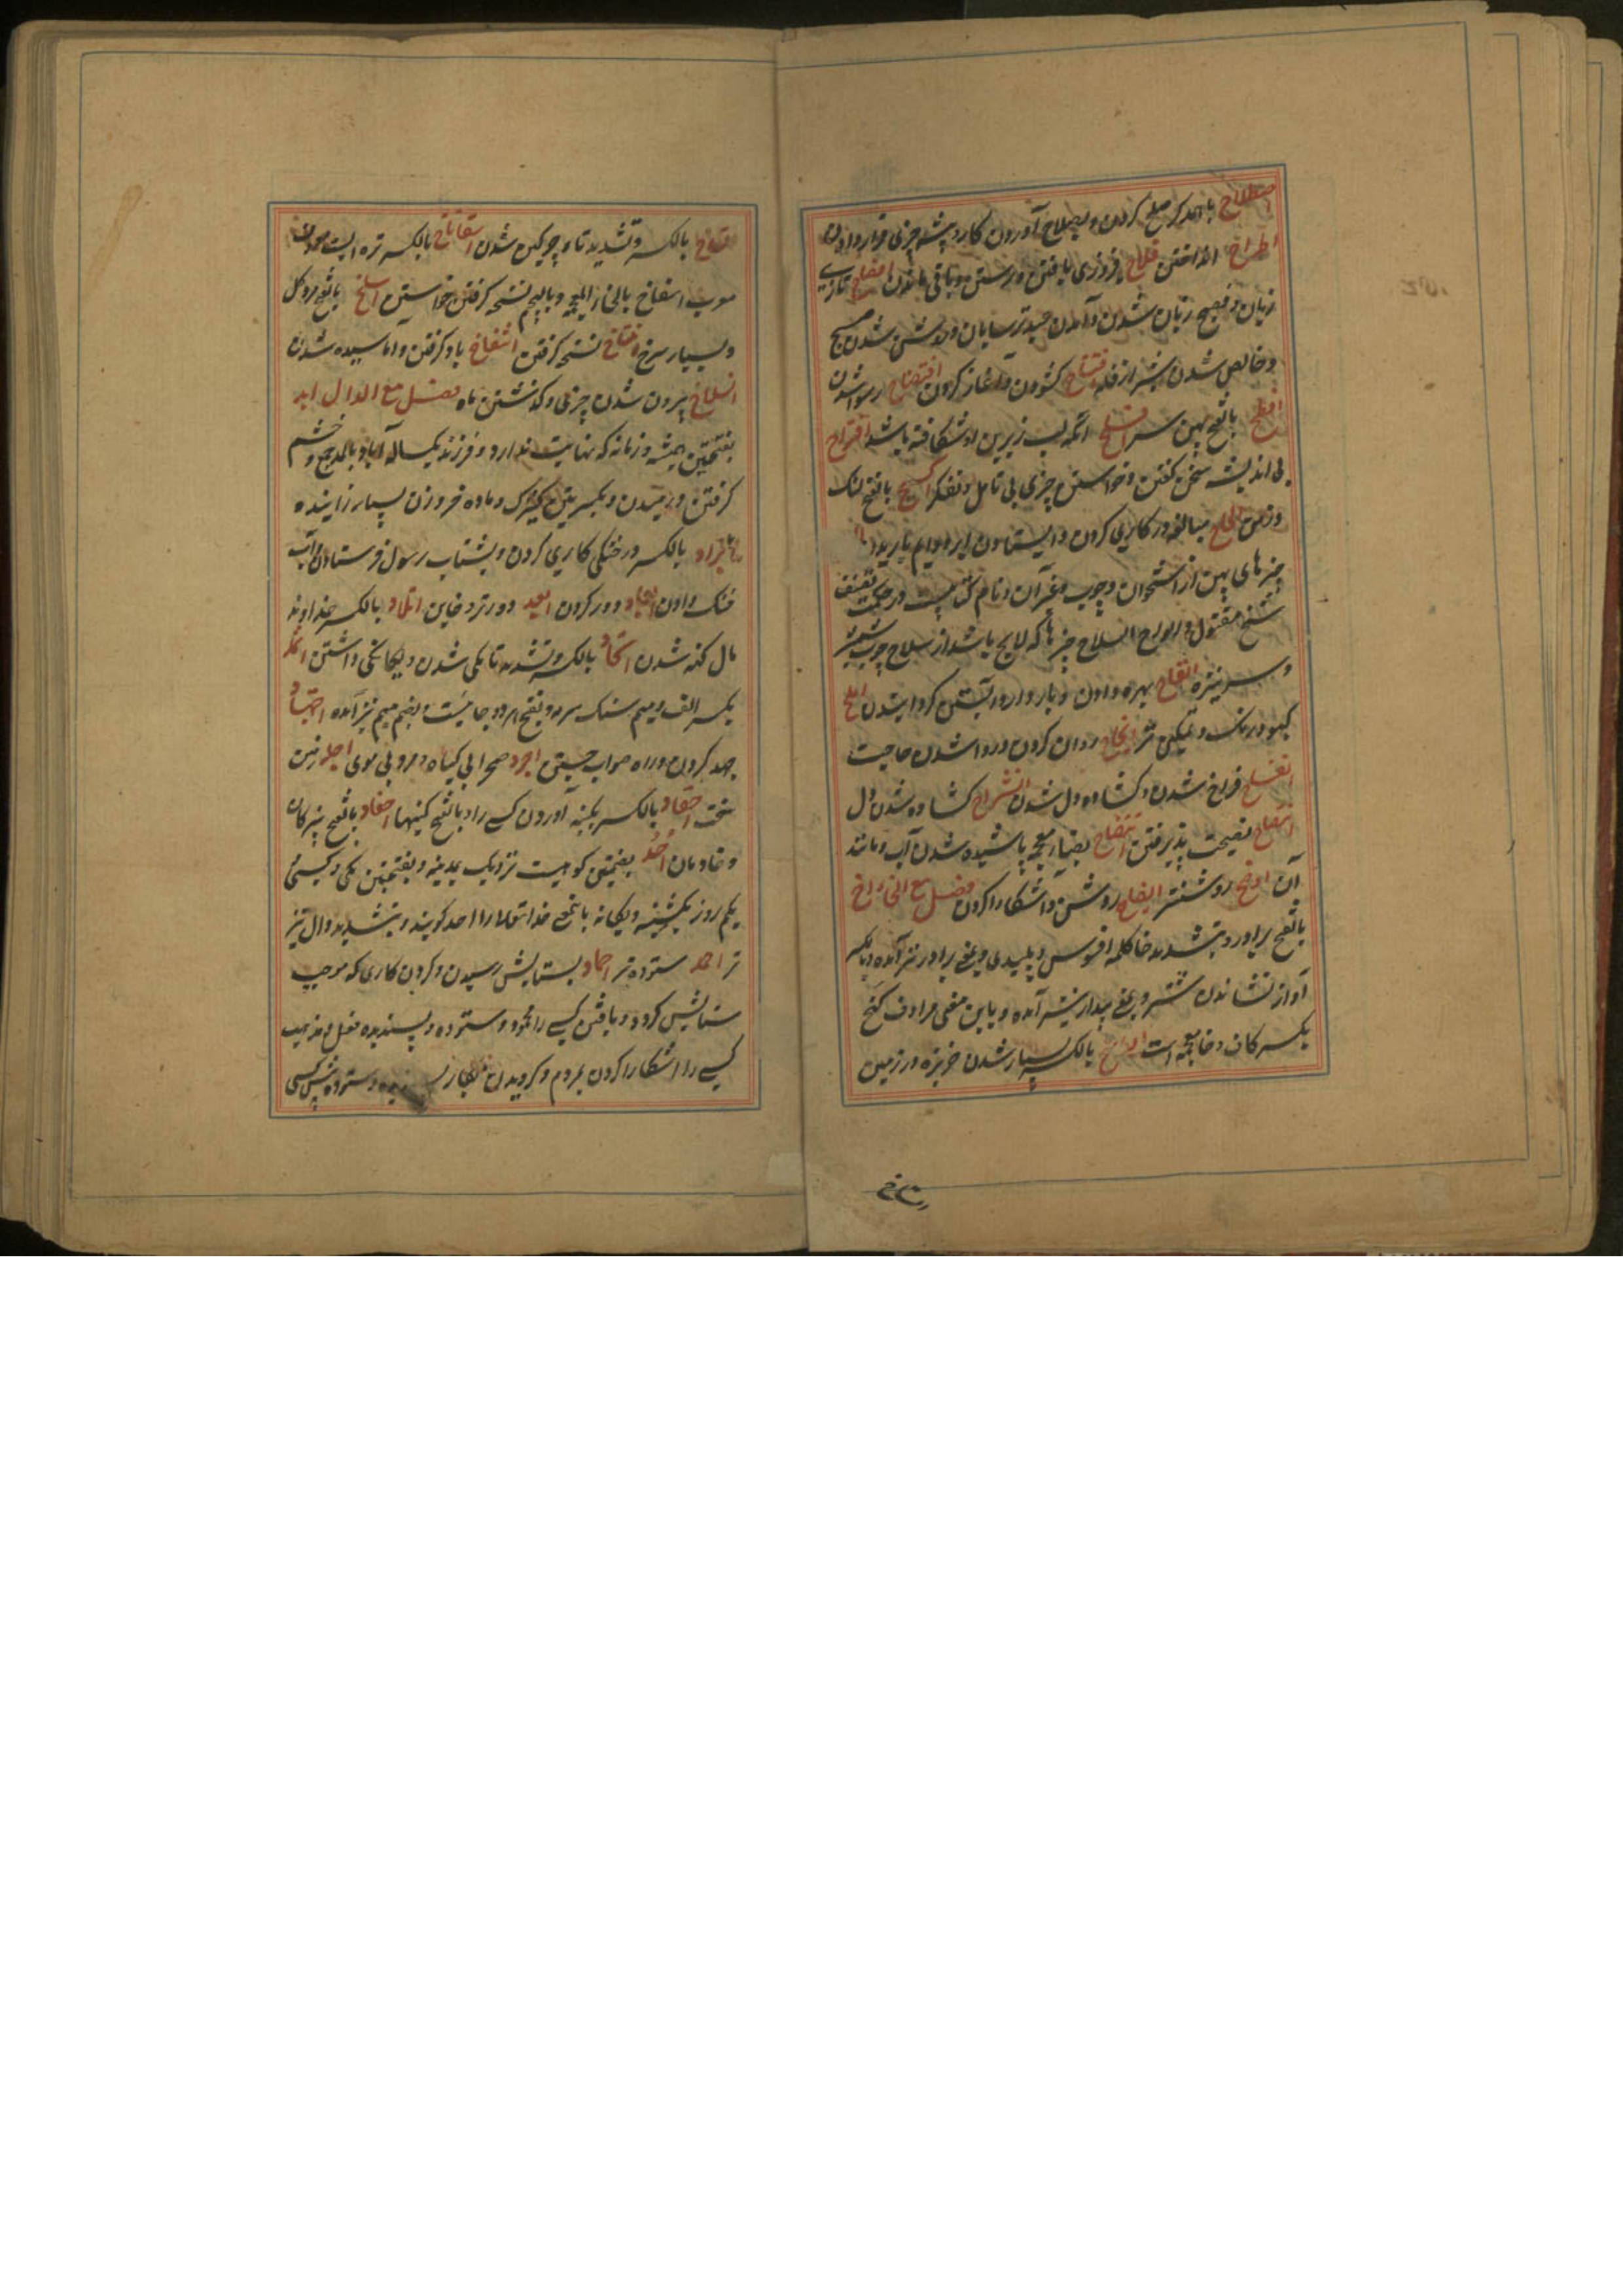 اصطلاح با هم دیگر صلح کردن و بصلاح آوردن کار و پیشه چیزی قرار دادن
اطراح انداختن فلاح فیروزی یافتن و رستن و باقی ماندن افصاح تازی
زبان و فصیح زبان شدن و آمدن عید ترسایان و روشن شدن صبح
و خالص شدن شیر از فله افتتاح کشودن و آغاز کردن افتضاح رسوا شدن
افطح بالفتح پهن سر افلح آنکه لب زیرین او شکافته باشد اقتراح
بی اندیشه سخن گفتن و خواستن چیزی بی تامل و تفکر اکسح بالفتح لنک
و زمن الحاح مبالغه در کاری کردن و ایستادن ابر و دایم باریدن
چیزهای پهن از استخوان و چوب و غیر آن و نام کتابیست در حکمت تصنیف
شیخ مقتول و الواح السلاح چیزها که لایح باشد از سلاح چون شمشیر
و سر نیزه القاح بهره دادن و باردار و آبستن گردانیدن املح
کبود رنک و نمکین تر انجاح روان کردن و روا شدن حاجت
فراخ شدن و کشاده دل شدن انشراح کشاده شدن دل
انتصاح نصیحت پذیرفتن انتضاح بضاد معجمه پاشیده شدن آب و مانند
آن اوضح روشنتر ایضاح روشن و آشکارا کردن فصل مع الخاء اخ
بالفتح برادر و بتشدید خا کلمه افسوس و پلیدی و بمعنی برادر نیز آمده و بالکسر
آواز نشاندن شتر و بمعنی بیدار نیز آمده و باین معنی مرادف کخ
بکسر کاف و خا معجمه است بالکسر بسیار شدن خربزه در زمین
بالکسر و تشدید تا و چرکین شدن اسفاناخ بالکسر تره ایست معروف
معرب اسفاخ بالخاء المعجمه و بالجیم نسخه کرفتن خواستن اسلخ بالفتح مرد کل
و بسیار سرخ نسخه کرفتن انتفاخ باد کرفتن و اماسیده شدن
انسلاخ بیرون شدن چیزی و کذشتن ماه فصل مع الدال ابد
بفتحتین همیشه و زمانه که نهایت ندارد و فرزند یکساله آباد بالمد جمع و خشم
کرفتن و رمیدن و بکسرتین کنیزک و ماده خر و زن بسیار زاینده
ابراد بالکسر در خنکی کاری کردن و بشتاب رسول فرستادن و آب
خنک دادن ابعاد دور کردن ابعد دورتر و خاین اتلاد بالکسر خداوند
مال کهنه شدن اتحاد بالکسر و تشدید تا یکی شدن و یکانکی داشتن اثمد
بکسر الف و میم سنک سرمه و بفتح هر دو جائیست و بضم میم نیز آمده اجتهاد
جهد کردن و راه صواب جستن اجرد صحرا بی کیاه و مرد بی موی اجلد زمین
سخت احقاد بالکسر بکینه آوردن کسی را و بالفتح کینها احفاد بالفتح نبیرکان
و خادمان احد بضمتین کوهیست نزدیک بمدینه و بفتحتین یکی و کسی
یکم روز یکشنبه و یکانه باین معنی خدا تعالی را احد کویند و بتشدید دال تیز
تر احمد ستوده تر احماد بستایش رسیدن و کردن کاری که موجب
ستایش کردد و یافتن کسی را محمود و ستوده و پسندیده فعل و مذهب
کسی را آشکارا کردن بمردم و کرویدن
رتاخ